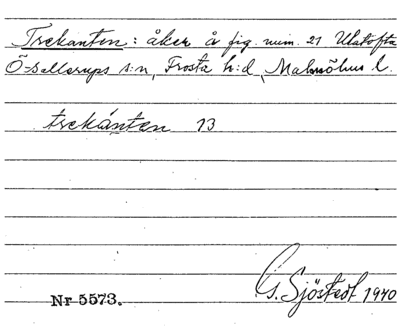 Trekanten: åker å fig. num. 21 Ulatofta
Ö-Sallerups s:n, Frosta h:d, Malmöhus l.
trekánten 13
G. Sjöstedt 1940
Nr 5573.